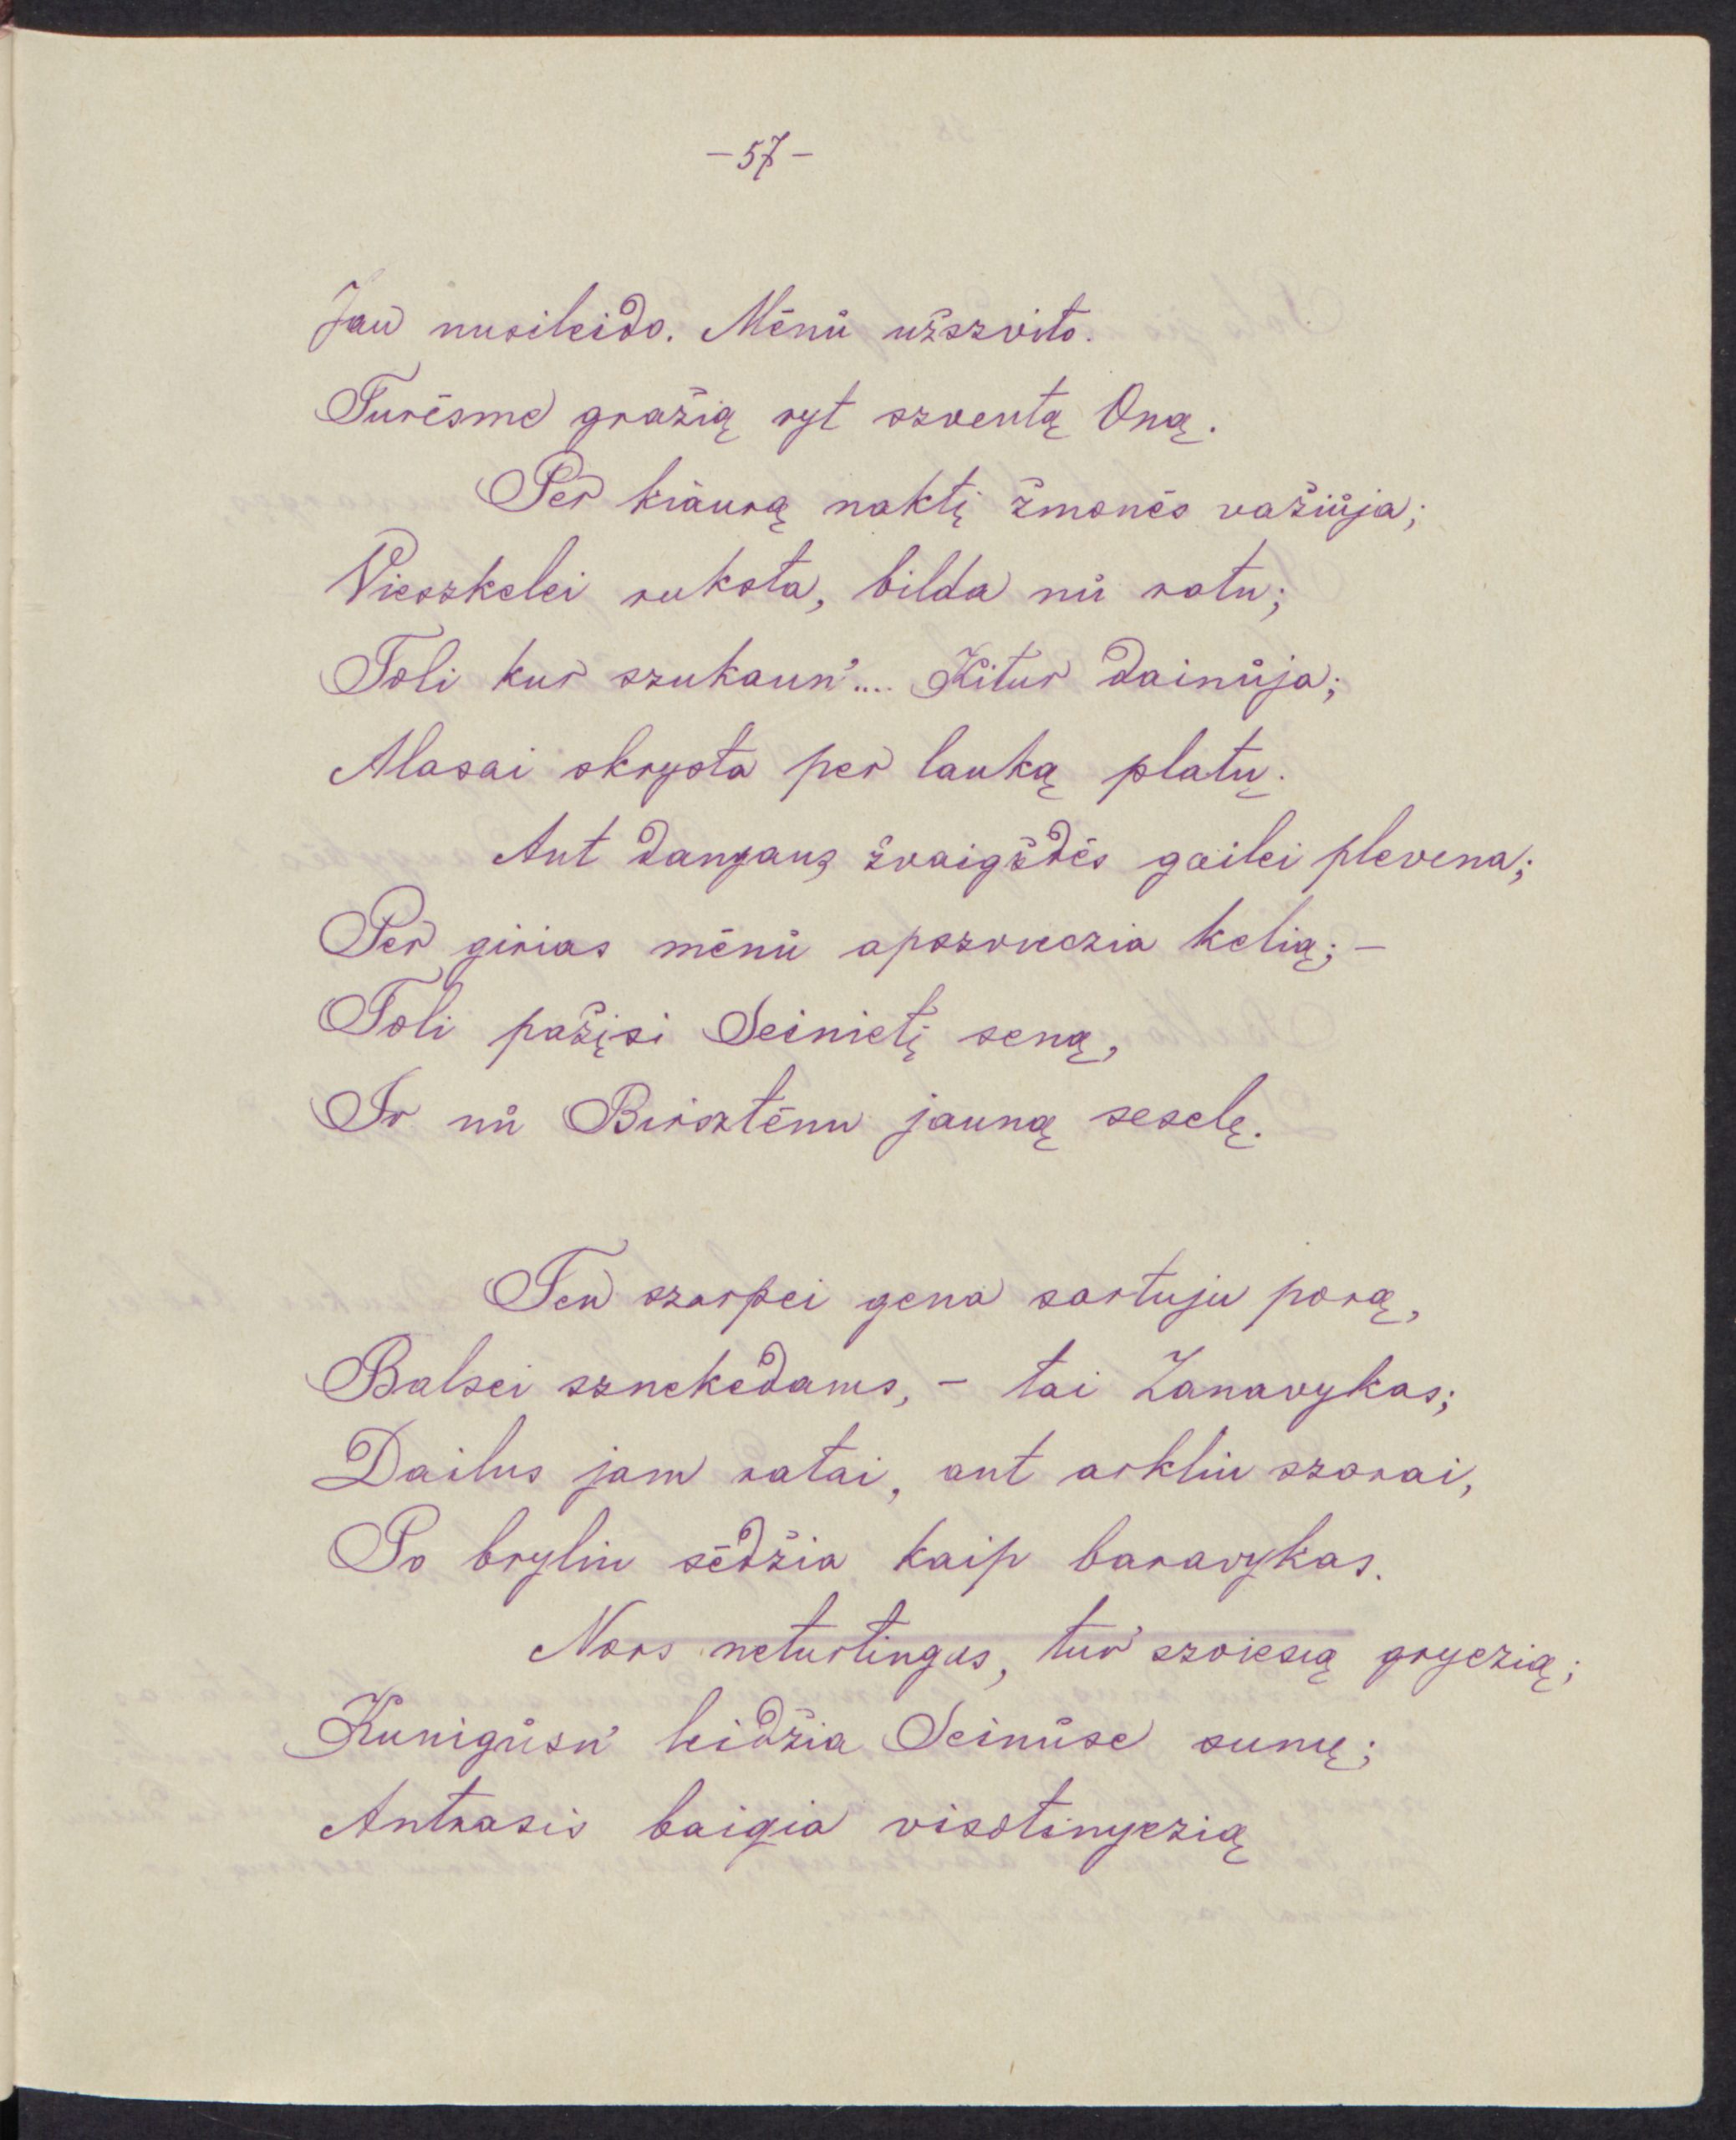 – 57 –
Jau nusileido. Mėnů užszvito.
Turėsme gražią ryt szventą Oną.
Per kiaurą naktį žmonės važiůja;
Vieszkelei rūksta, bilda nů ratu;
Toli kur szukaun'.... Kitur dainůja;
Alasai skrysta per lauką platų.
Ant dangaus žvaigždės gailei plevena;
Per girias mėnů apszvieczia kelią; –
Toli pažįsi Seinietį seną,
Ir nů Birsztėnu jauną seselę.
Ten szarpei gena sartuju porą,
Balsei sznekėdams, – tai Zanavykas;
Dailus jam ratai, ant arkliu szorai,
Po bryliu sėdžia kaip baravykas.
Nors neturtingas, tur' szviesią gryczią;
Kunigůsn' leidžia Seinůse sunų;
Antrasis baigia visotinyczią